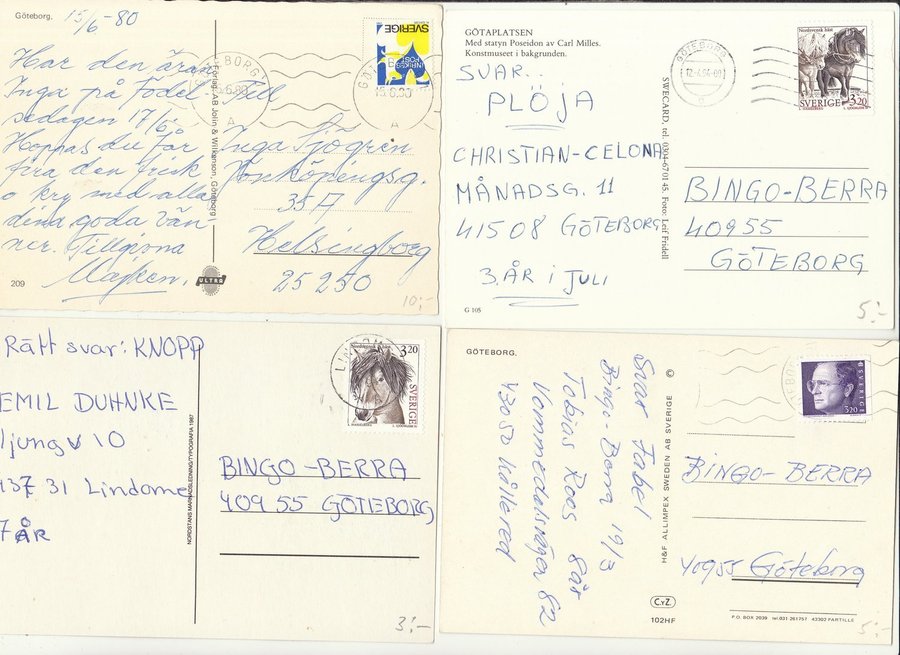 Göteborg. 15/6-80
Har den äran
Inga på Födel
sedagen 17/6.
Hoppas du får
fira den frisk
o kry med alla
dina goda vän-
ner. Tillgivna
Majken.
209
Förlag: AB Jolin & Wilkenson, Göteborg
ULTRA
SVERIGE
INRIKES POST
GÖTEBORG
15.6.80
A
Till
Inga Sjögren
Jönköpingsg.
35 A
Helsingborg
25230
10:-
GÖTAPLATSEN
Med statyn Poseidon av Carl Milles.
Konstmuseet i bakgrunden.
SVAR..
PLÖJA
CHRISTIAN-CELONA
MÅNADSG. 11
41508 GÖTEBORG
3.ÅR i JULI
G 105
SWECARD, tel. 0304-67 01 45. Foto: Leif Fridell
GÖTEBORG
Nordsvensk häst
SVERIGE 3.20
BINGO-BERRA
40955
GÖTEBORG
5:-
Rätt svar: KNOPP
EMIL DUHNKE
ljungv 10
437 31 Lindome
7 ÅR
NORDSTANS MARKNADSLEDNING/TYPOGRAFIA 1987
3.20
SVERIGE
BINGO-BERRA
409 55 GÖTEBORG
3:-
GÖTEBORG.
Svar Fabel
Bingo-Berra 19/3
Tobias Roos 8 år
Vommedalsvägen 82
43050 Kållered
H&F ALLIMPEX SWEDEN AB SVERIGE ©
C.v.Z.
102HF
SVERIGE
3.20
BINGO-BERRA
40955 Göteborg
P.O. BOX 2039 tel.031 261757 43302 PARTILLE
5:-